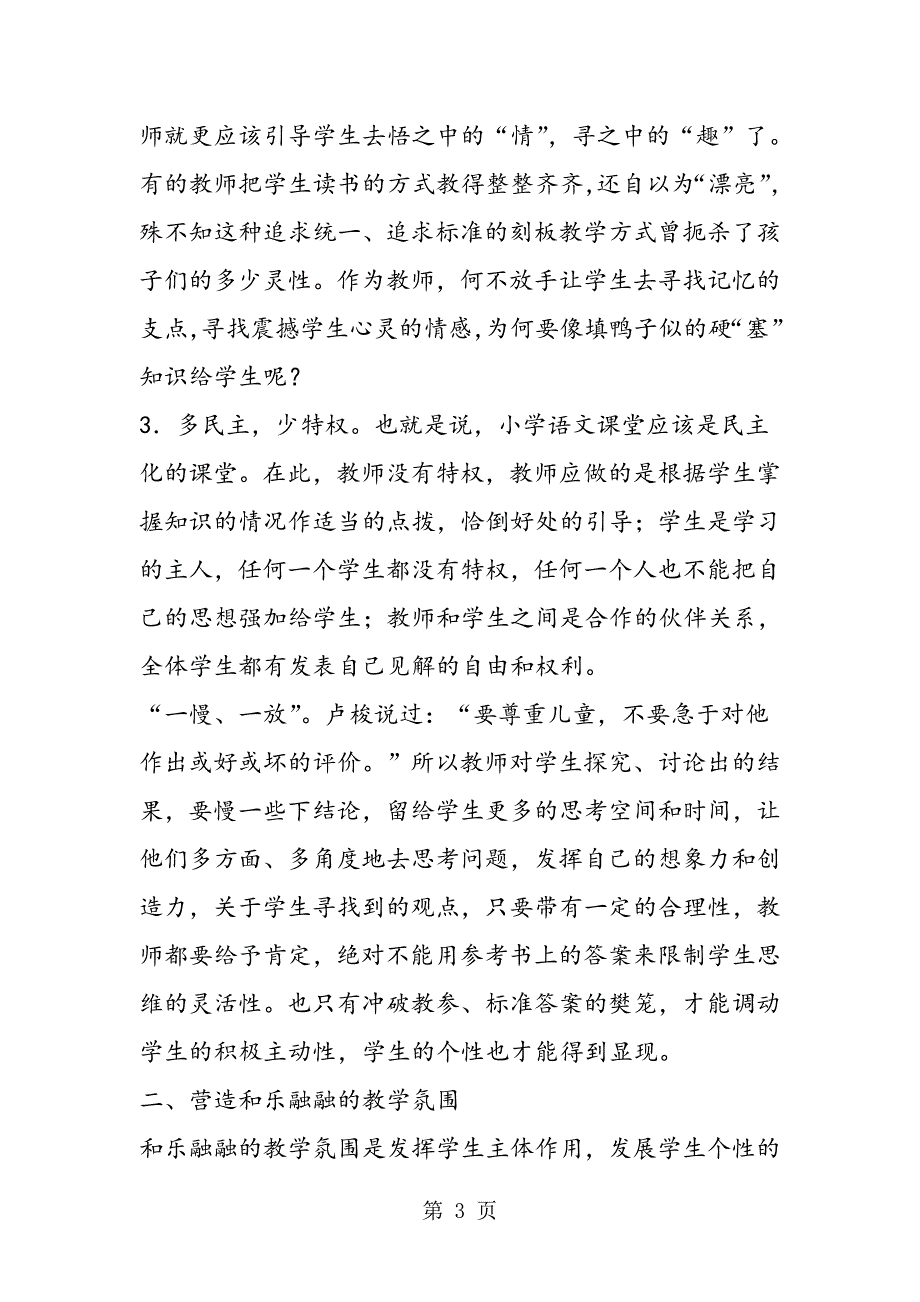 师就更应该引导学生去悟之中的“情”，寻之中的“趣”了。
有的教师把学生读书的方式教得整整齐齐,还自以为“漂亮”,
殊不知这种追求统一、追求标准的刻板教学方式曾扼杀了孩
子们的多少灵性。作为教师，何不放手让学生去寻找记忆的
支点,寻找震撼学生心灵的情感,为何要像填鸭子似的硬“塞”
知识给学生呢？
3．多民主，少特权。也就是说，小学语文课堂应该是民主
化的课堂。在此，教师没有特权，教师应做的是根据学生掌
握知识的情况作适当的点拨，恰倒好处的引导；学生是学习
的主人，任何一个学生都没有特权，任何一个人也不能把自
己的思想强加给学生；教师和学生之间是合作的伙伴关系，
全体学生都有发表自己见解的自由和权利。
“一慢、一放”。卢梭说过：“要尊重儿童，不要急于对他
作出或好或坏的评价。”所以教师对学生探究、讨论出的结
果，要慢一些下结论，留给学生更多的思考空间和时间，让
他们多方面、多角度地去思考问题，发挥自己的想象力和创
造力，关于学生寻找到的观点，只要带有一定的合理性，教
师都要给予肯定，绝对不能用参考书上的答案来限制学生思
维的灵活性。也只有冲破教参、标准答案的樊笼，才能调动
学生的积极主动性，学生的个性也才能得到显现。
二、营造和乐融融的教学氛围
和乐融融的教学氛围是发挥学生主体作用，发展学生个性的
第 3 页